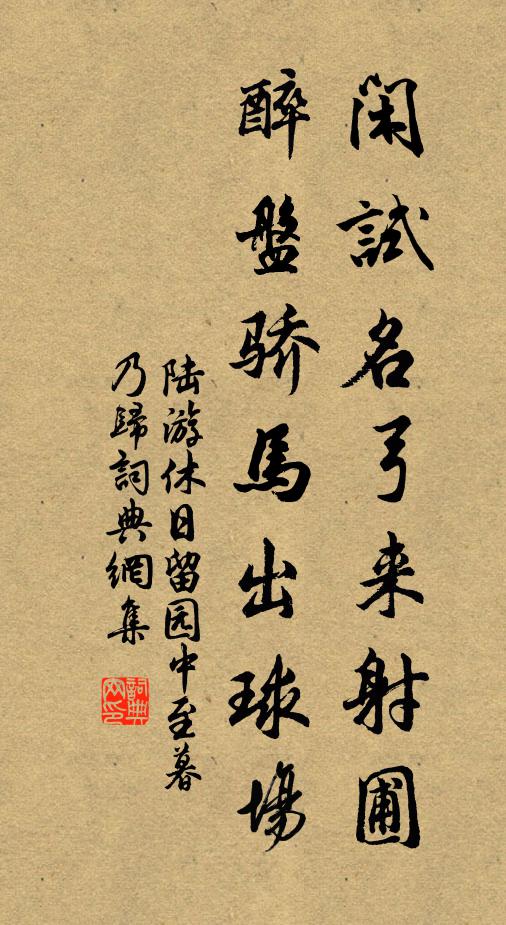 闲試名弓来射圃
醉盤骄馬出球場
陆游休日留园中至暮
乃歸詞典網集
詞典网印